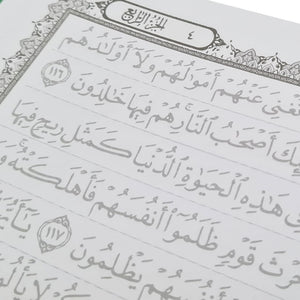 الجزء الرابع
٤
تغني عنهم أموالهم ولا أولادهم
أصحاب النار هم فيها خالدون ١١٦
هاذه الحيواة الدنيا كمثل ريح فيها
حرث قوم ظلموا أنفسهم فأهلكته و
أنفسهم يظلمون ١١٧ يا أيها
لا يألو